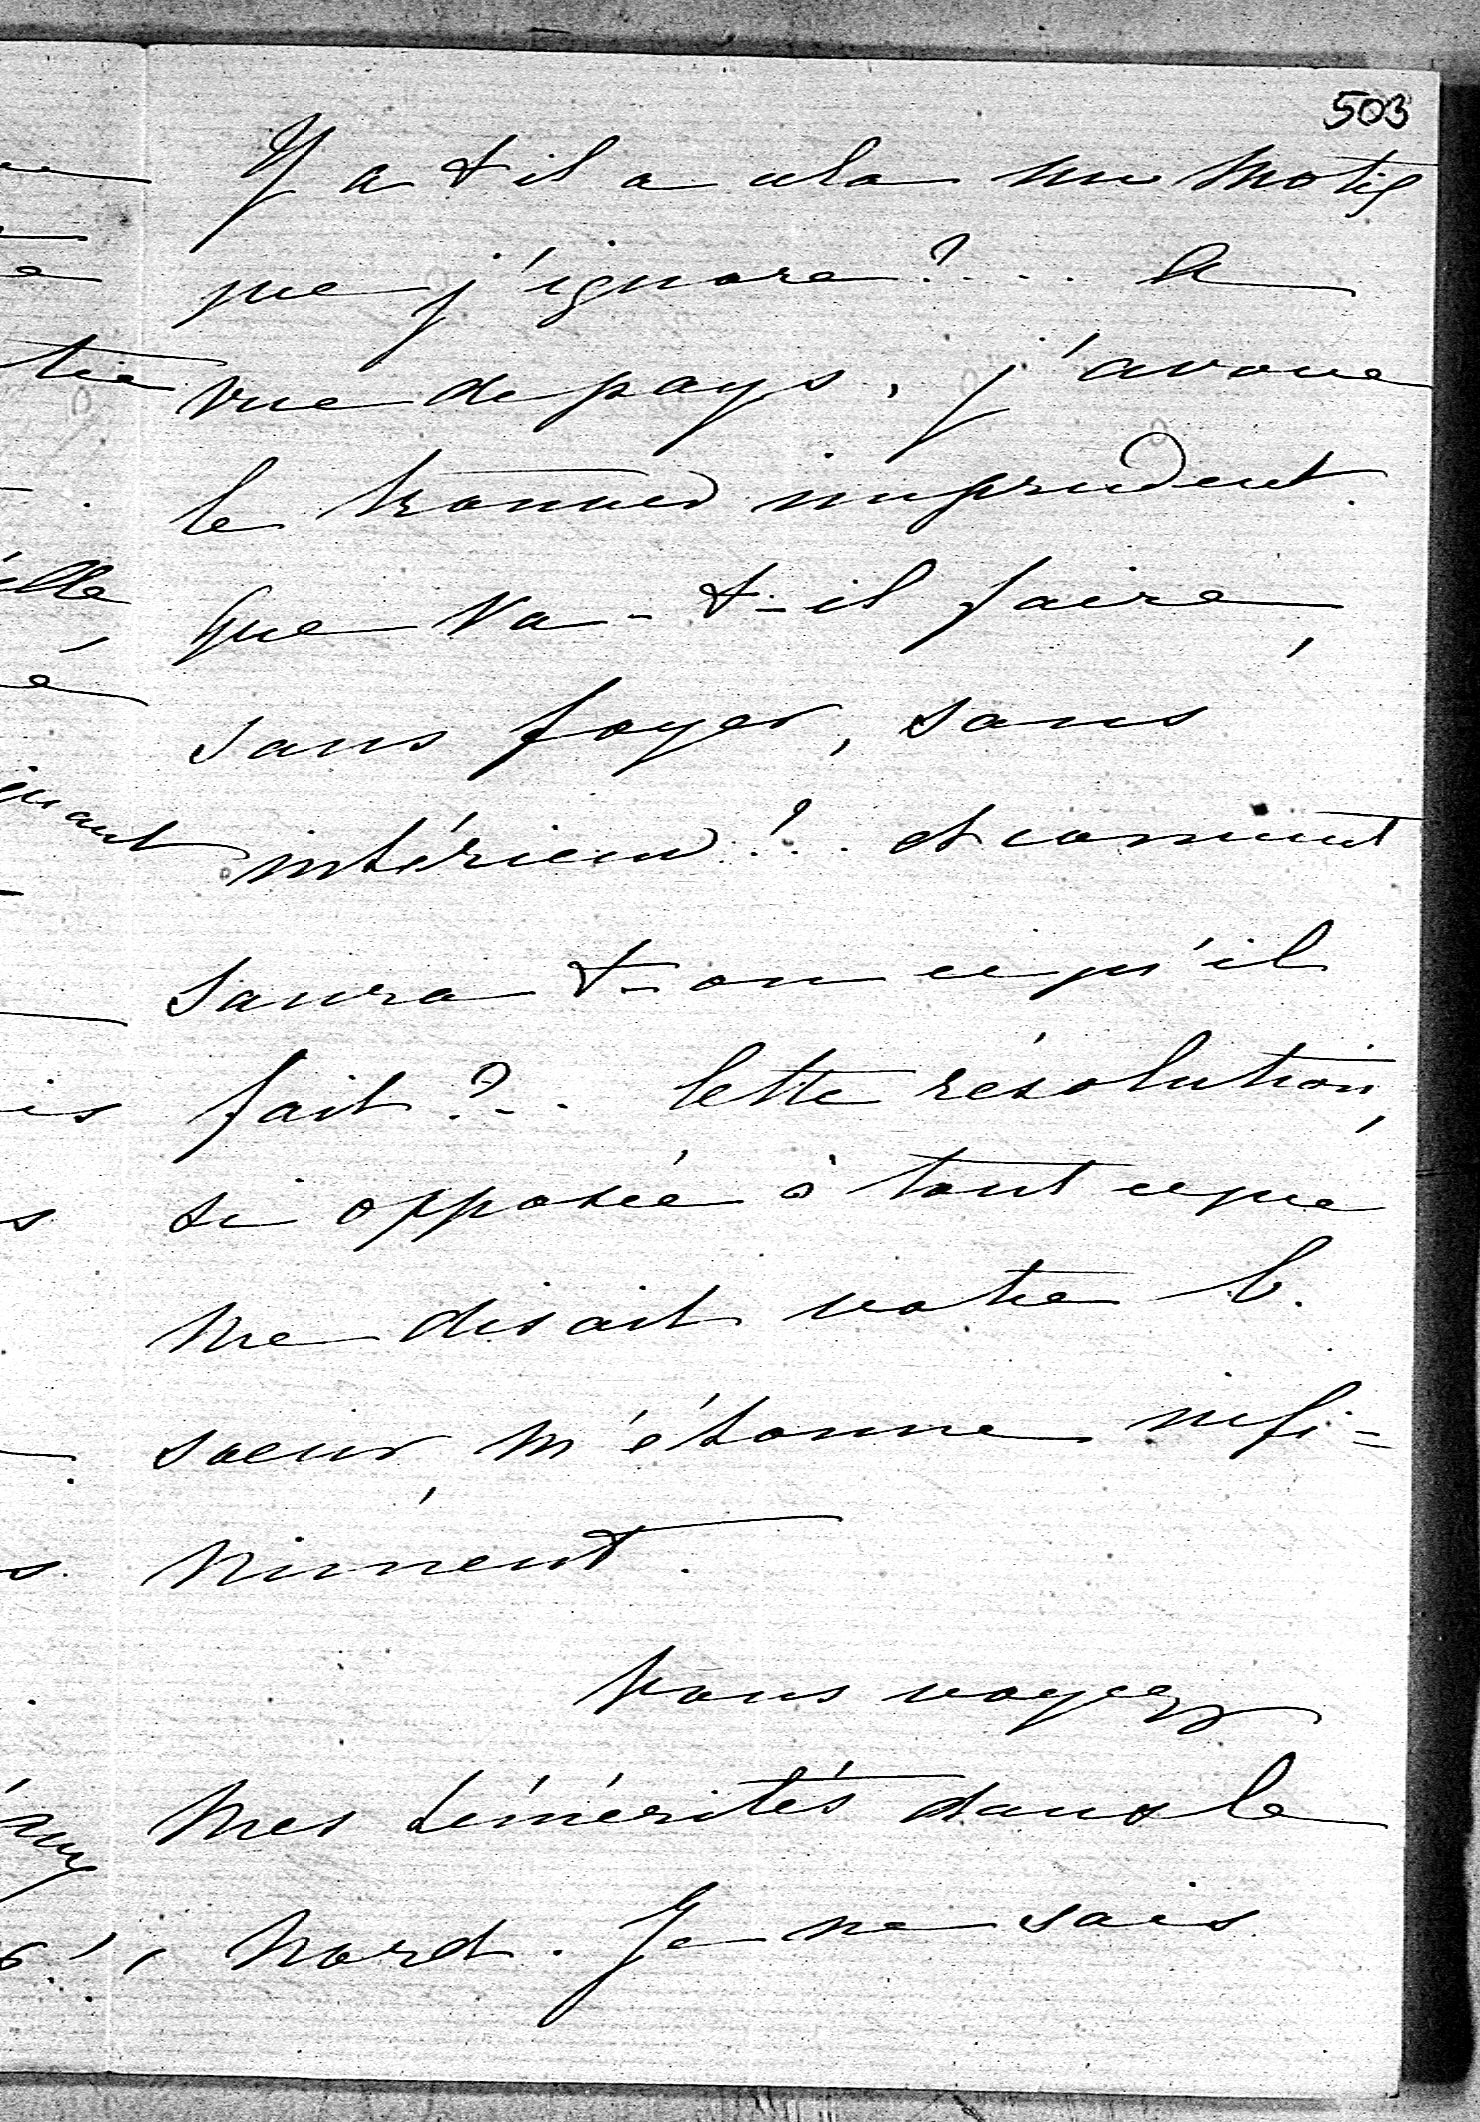 503
Y a t il a cela un motif
que j'ignore ?... A
vue de pays, j'avoue
le trouver imprudent.
Que va-t-il faire,
sans foyer, sans
intérieur ?.. et comment
saura t-on ce qu'il
fait ?.. Cette résolution,
si opposée à tout ce que
me disait votre b.
soeur, m'étonne infi=
niment.
Vous voyez
mes témérités dans le
Nord. Je ne sais